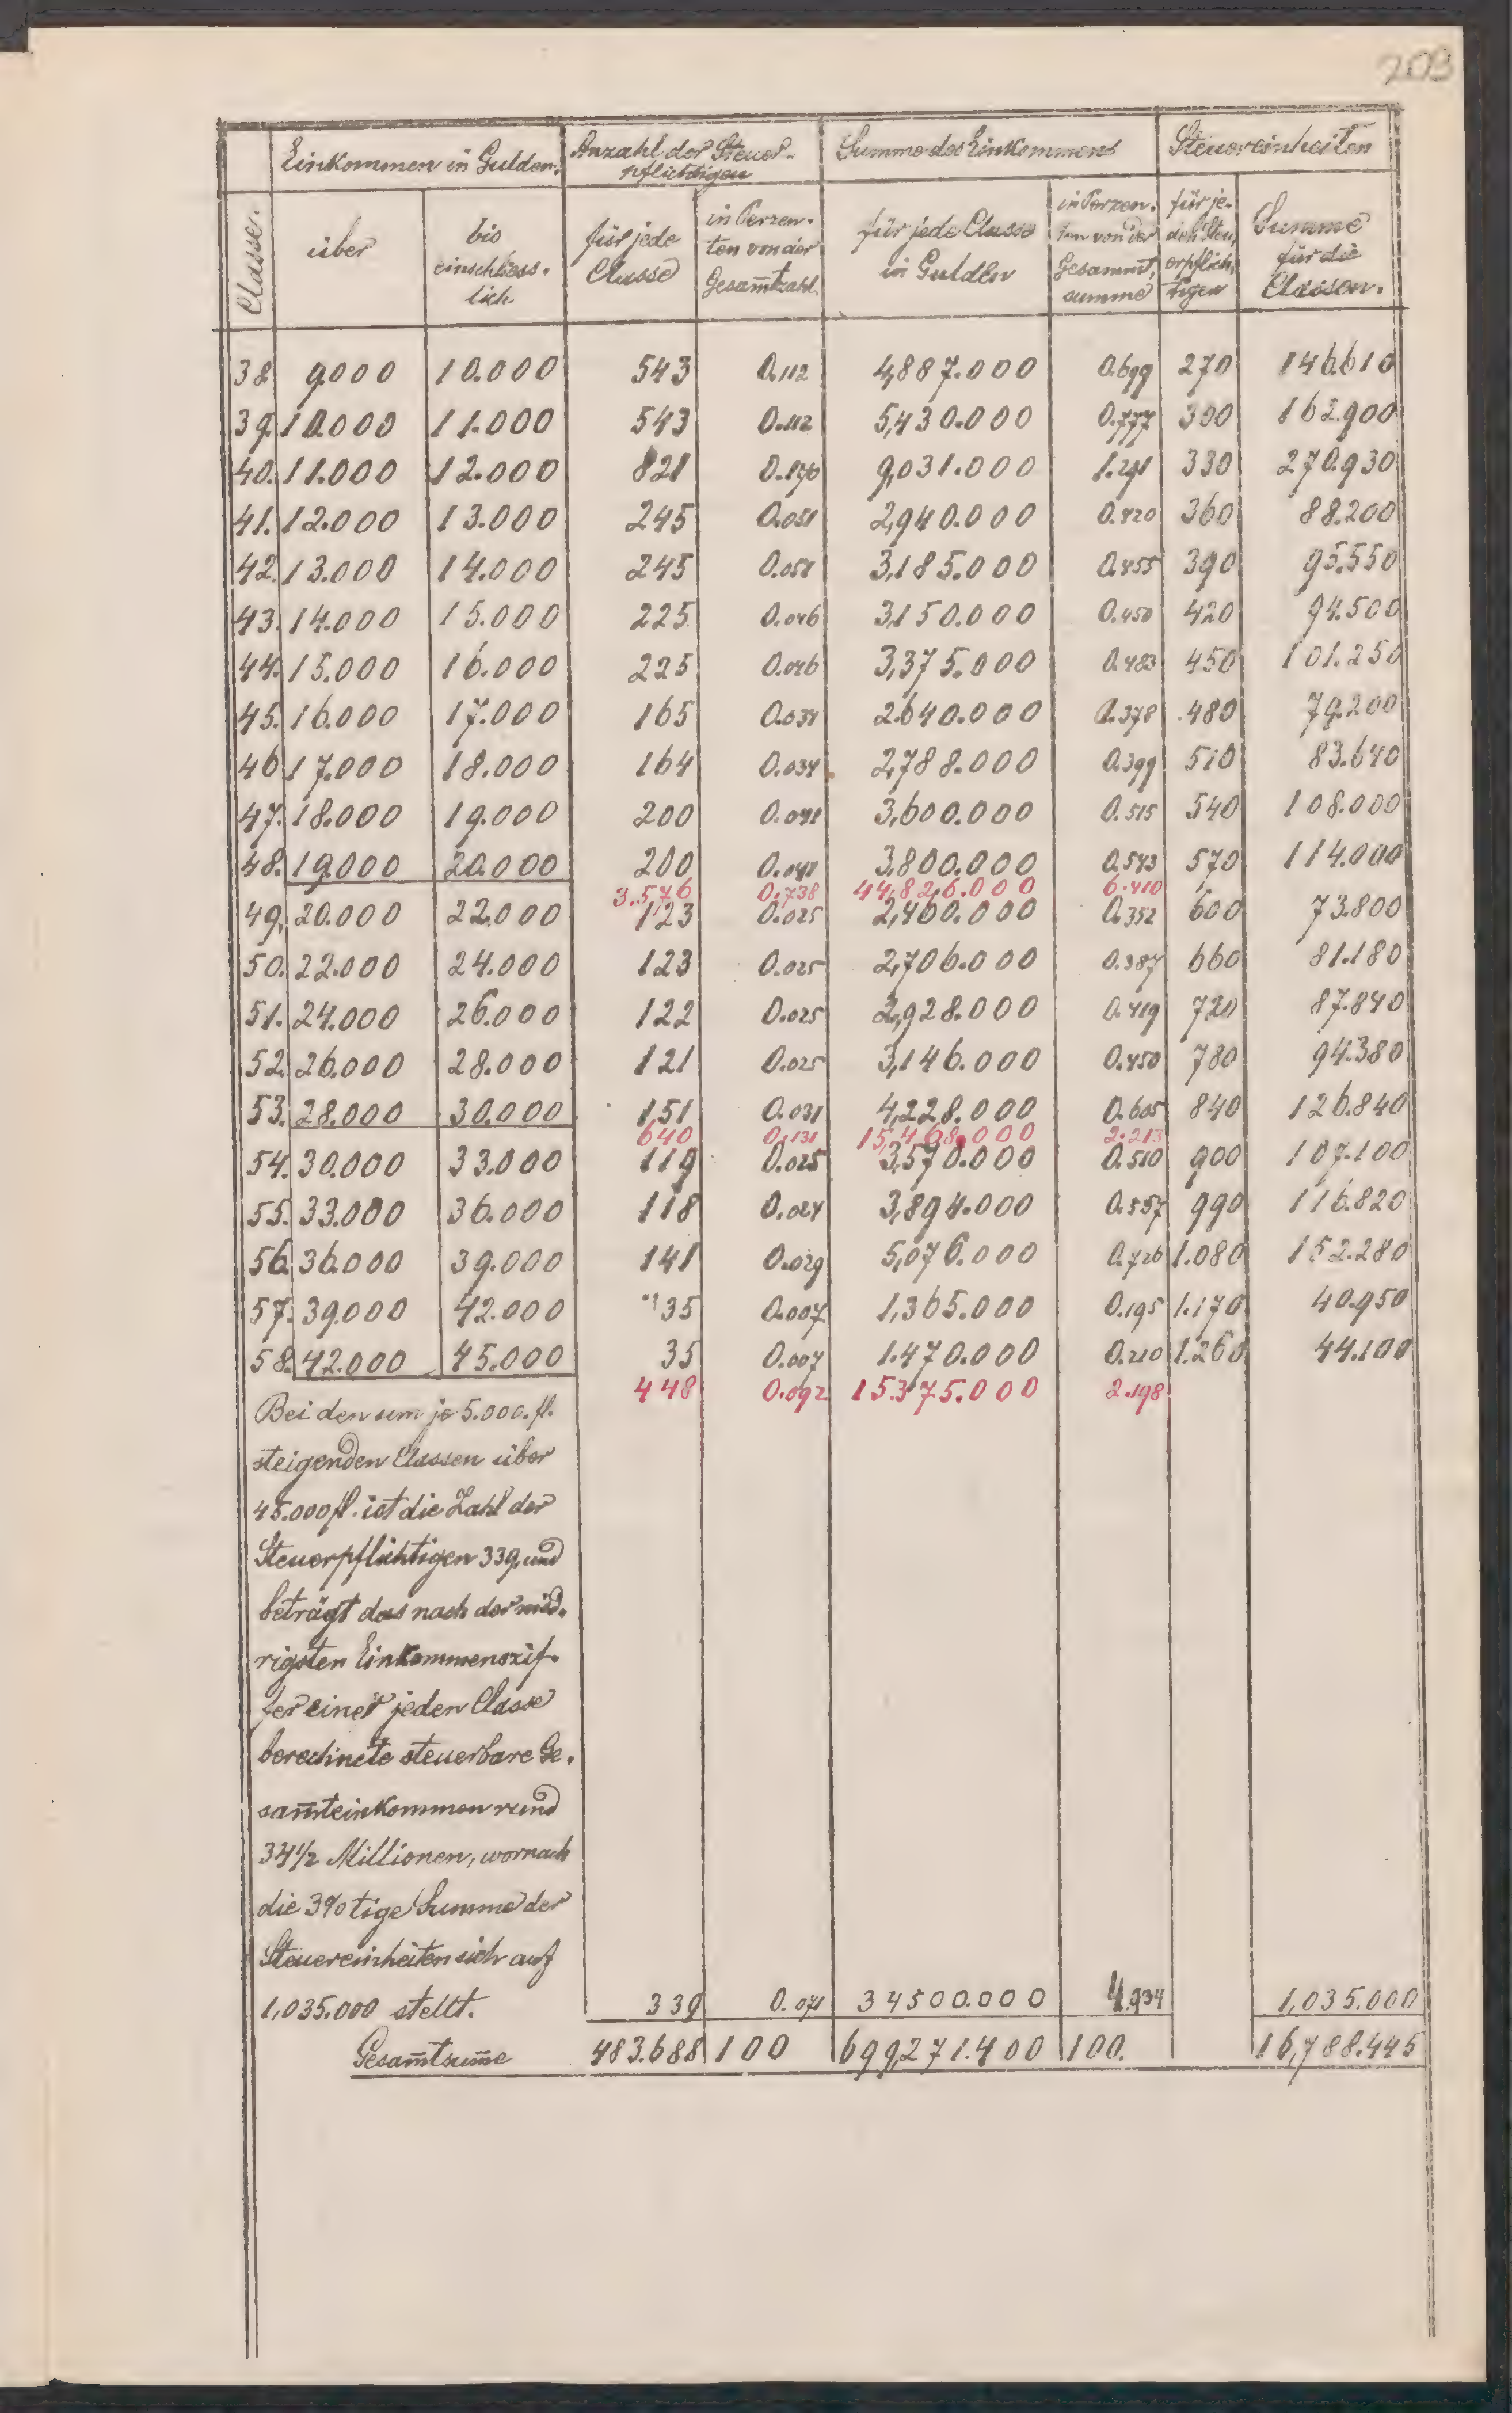 203
Einkommen in Gulden. Anzahl der Steuer- Summe des Einkommens Steuereinheiten
pflichtigen
Classe. über bis einschliess- lich für jede Classe in Perzen- ten von der Gesam̅tzahl. für jede Classe in Gulden in Perzen- ten von der Gesammt- summe für je- den Steu- erpflich- tigen Summe für die Classen.
38. 9.000 10.000 543 0.112 4,887.000 0.699 270 146.610
39. 10.000 11.000 543 0.112 5,430.000 0.777 300 162.900
40. 11.000 12.000 821 0.170 9,031.000 1.291 330 270.930
41. 12.000 13.000 245 0.051 2,940.000 0.420 360 88.200
42. 13.000 14.000 245 0.051 3,185.000 0.455 390 95.550
43. 14.000 15.000 225 0.046 3,150.000 0.450 420 94.500
44. 15.000 16.000 225 0.046 3,375.000 0.483 450 101.250
45. 16.000 17.000 165 0.034 2.640.000 0.378 480 79.200
46 17.000 18.000 164 0.034 2,788.000 0.399 510 83.640
47. 18.000 19.000 200 0.041 3,600.000 0.515 540 108.000
48. 19.000 20.000 200 0.041 3,800.000 0.543 570 114.000
3.576 0.738 44,826.000 6.410
49. 20.000 22.000 123 0.025 2,460.000 0.352 600 73.800
50. 22.000 24.000 123 0.025 2,706.000 0.387 660 81.180
51. 24.000 26.000 122 0.025 2,928.000 0.419 720 87.840
52. 26.000 28.000 121 0.025 3,146.000 0.450 780 94.380
53. 28.000 30.000 151 0.031 4,228.000 0.605 840 126.840
640 0.131 15,468.000 2.213
54. 30.000 33.000 119 0.025 3,570.000 0.510 900 107.100
55. 33.000 36.000 118 0.024 3,894.000 0.557 990 116.820
56. 36.000 39.000 141 0.029 5,076.000 0.726 1.080 152.280
57. 39.000 42.000 35 0.007 1,365.000 0.195 1.170 40.950
58. 42.000 45.000 35 0.007 1.470.000 0.210 1.260 44.100
448 0.092 15.375.000 2.198
Bei den um je 5.000. fl.
steigenden Classen über
45.000 fl. ist die Zahl der
Steuerpflichtigen 339, und
beträgt das nach der nied-
rigsten Einkommenszif-
fer einer jeden Classe
berechnete steuerbare Ge-
sam̅teinkommen rund
34 1/2 Millionen, wornach
die 3%tige Summe der
Steuereinheiten sich auf
1,035.000 stellt. 339 0.071 34500.000 4.934 1,035.000
Gesam̅tsum̅e 483.688 100 699,271.400 100. 16,788.445